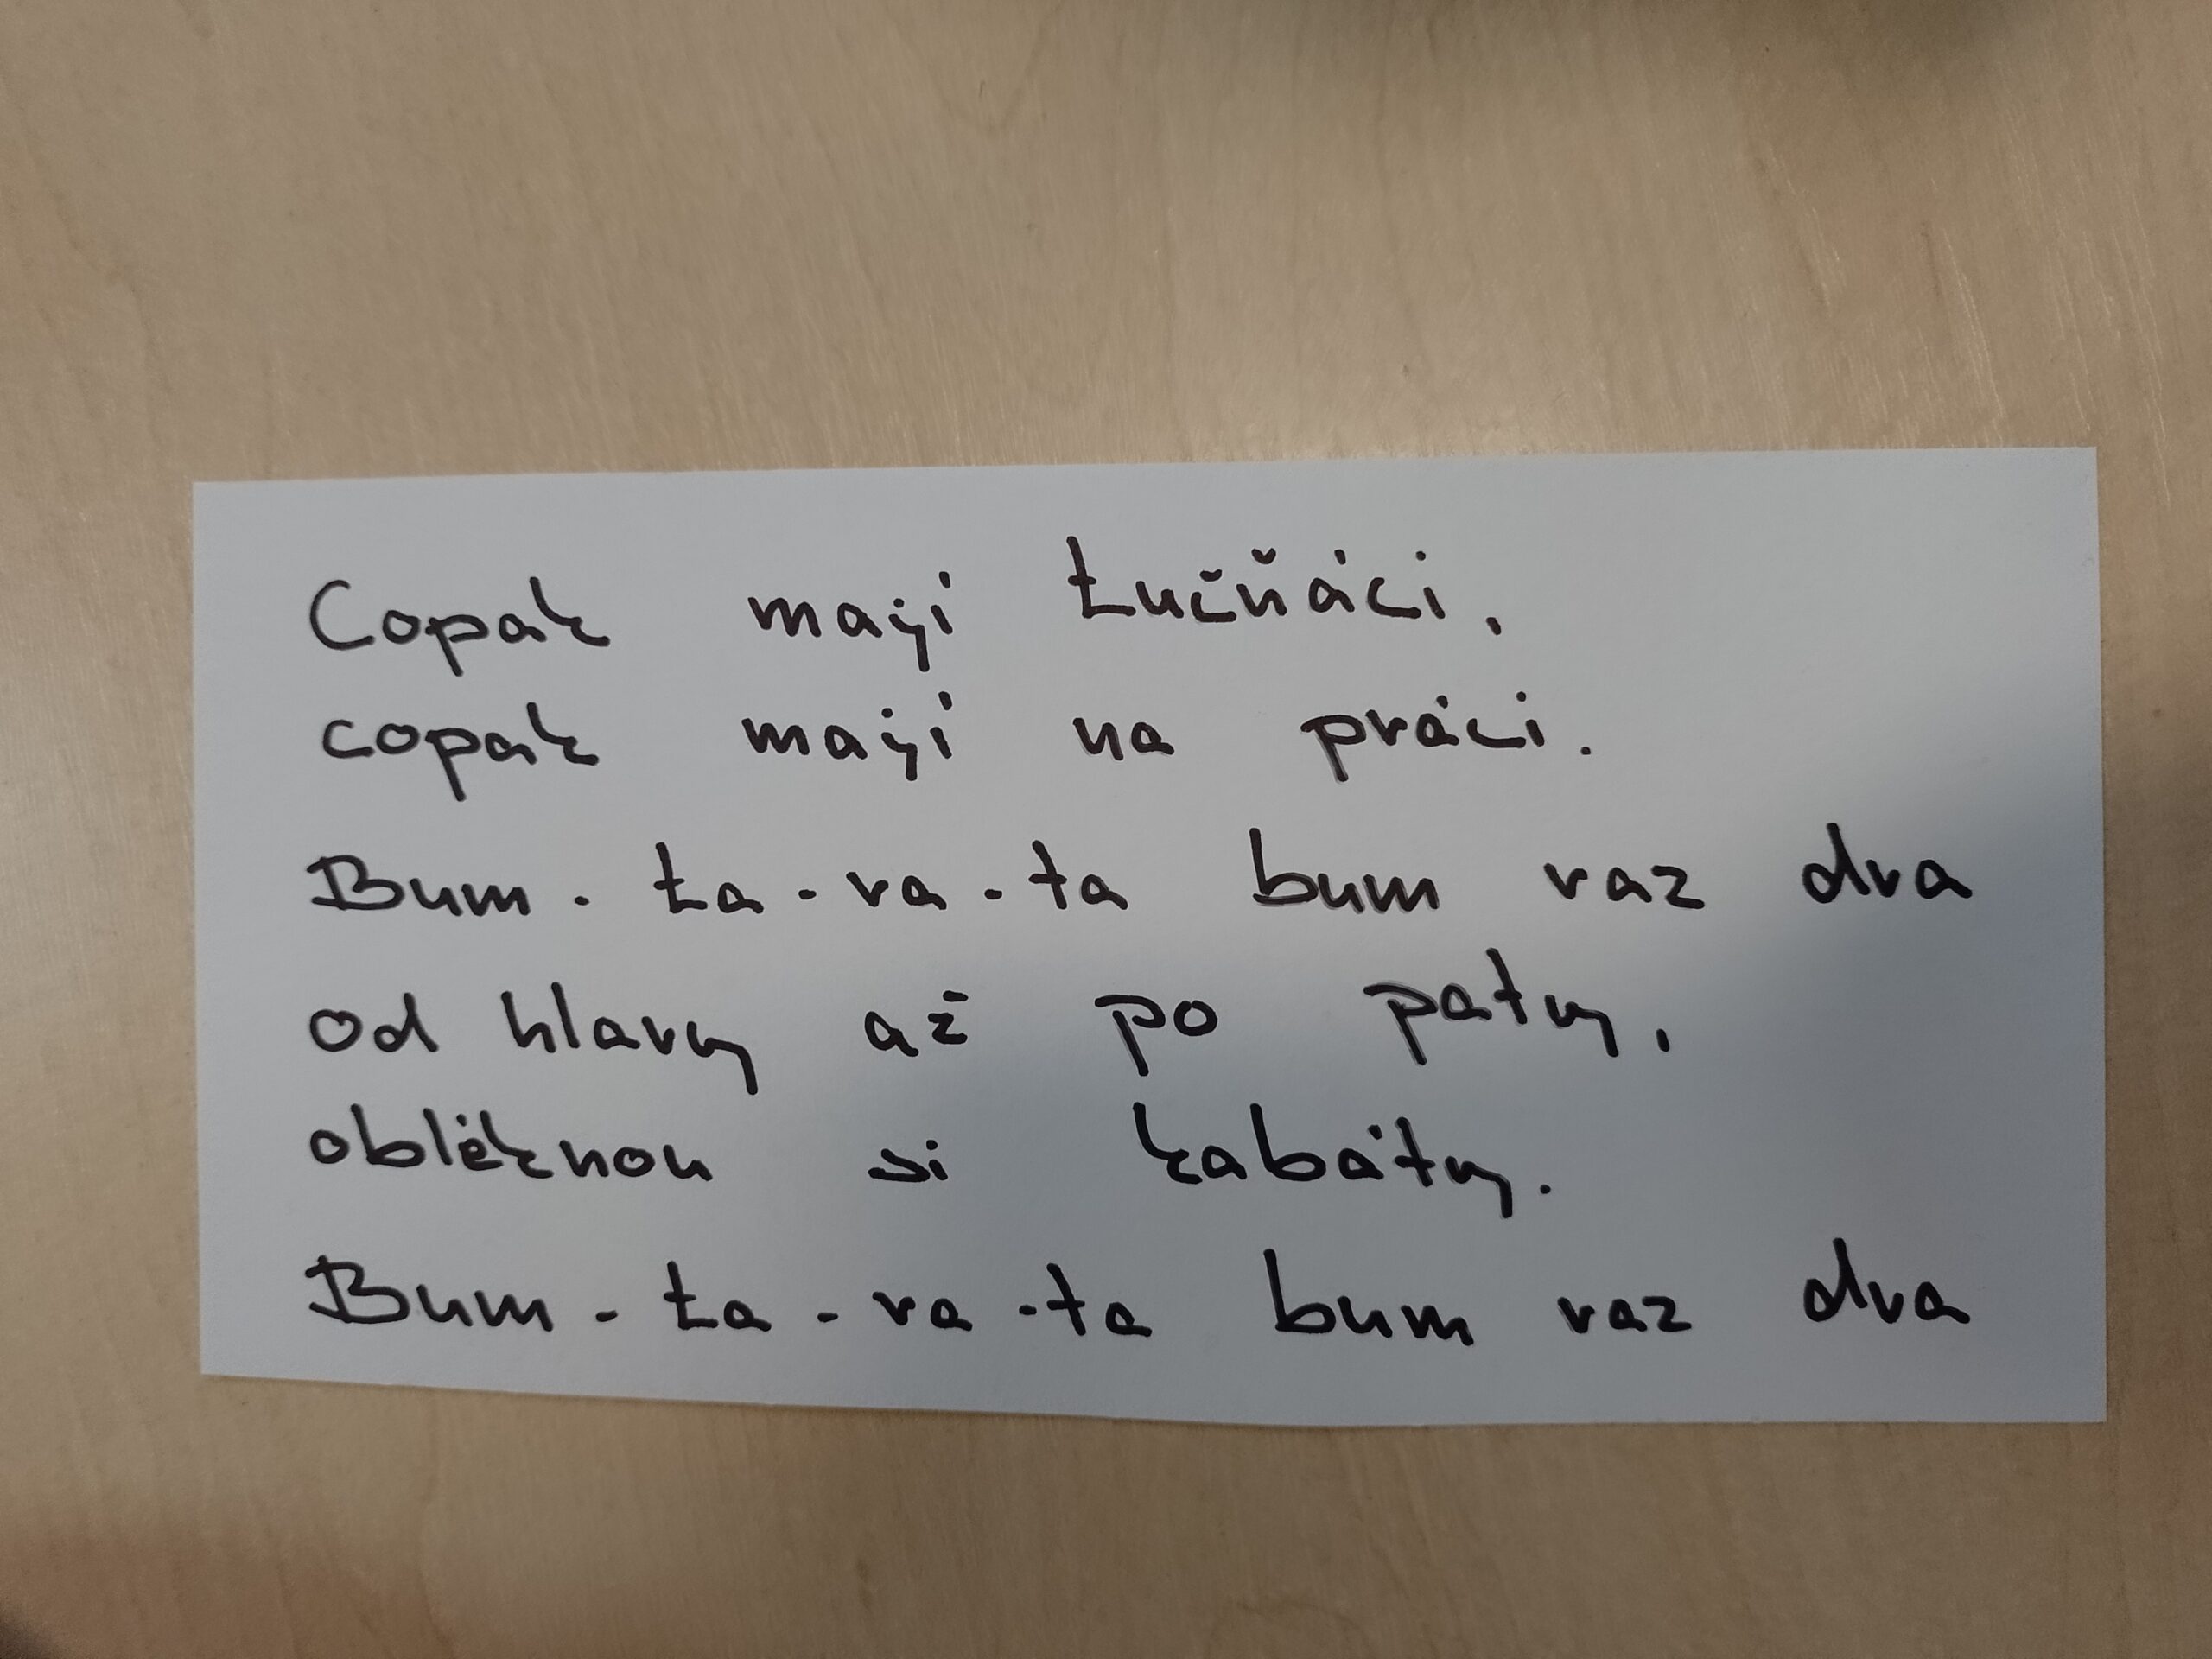 Copak mají tučňáci,
copak mají na práci.
Bum-ta-ra-ta bum raz dva
od hlavy až po paty,
obléknou si kabáty.
Bum-ta-ra-ta bum raz dva